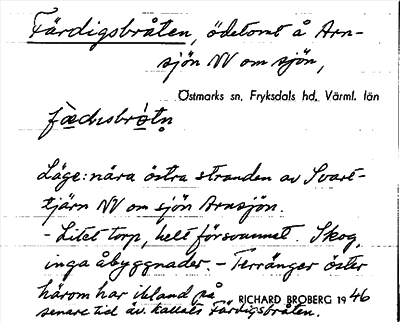 Färdigsbråten, ödetomt å Arn-
sjön NV om sjön,
Östmarks sn, Fryksdals hd, Värml. län
Läge: nära östra stranden av Svart-
tjärn NV om sjön Arnsjön.
- Litet torp, helt försvunnet. Skog,
inga åbyggnader. - Terränger öster
härom har ibland på
RICHARD BROBERG 1946
senare tid av. kallats Färdigsbråten.